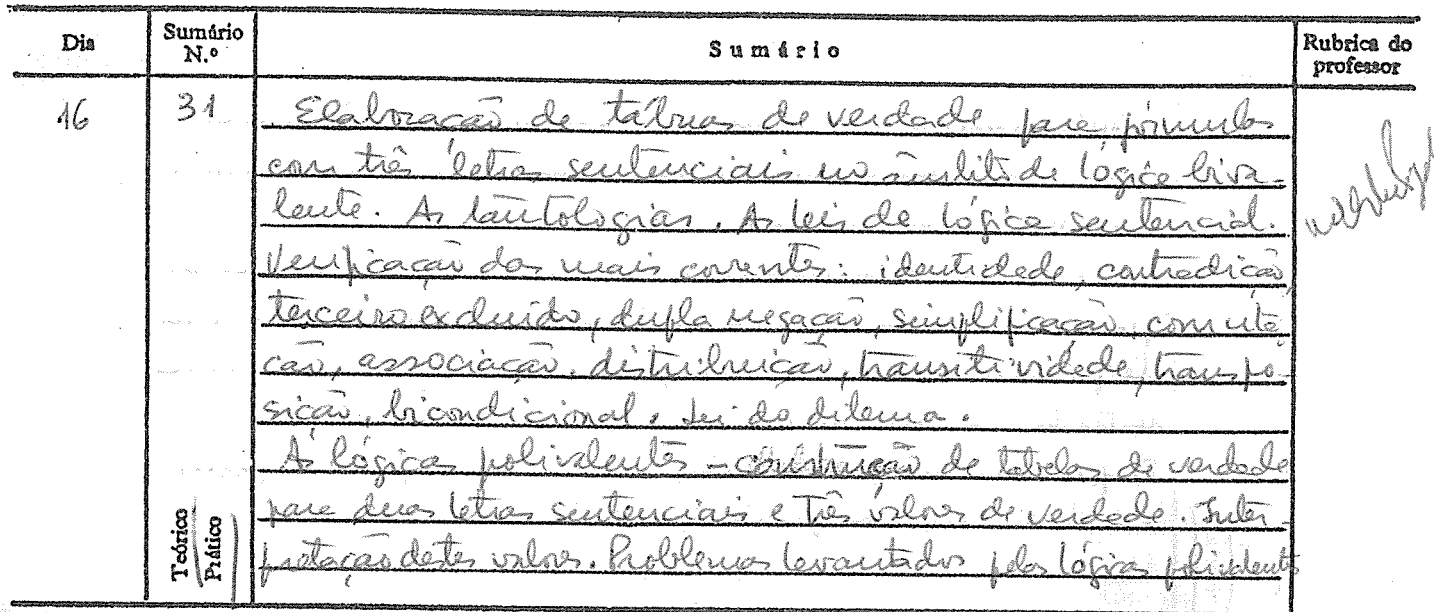 Dia
Sumário N.º
Sumário
Rubrica do professor
16
31
Elaboração de tábuas de verdade para fórmulas
com três letras sentenciais no âmbito de lógica biva-
lente. As tautologias. As leis de lógica sentencial.
Verificação das mais correntes: identidade, contradição,
terceiro excluído, dupla negação, simplificação, comuta
ção, associação, distribuição, transitividade, transpo-
sição, bicondicional. Lei do dilema.
As lógicas polivalentes - construção de tabelas de verdade
para duas letras sentenciais e três valores de verdade. Inter-
pretação destes valores. Problemas levantados pelas lógicas polivalentes
Teórico
Prático